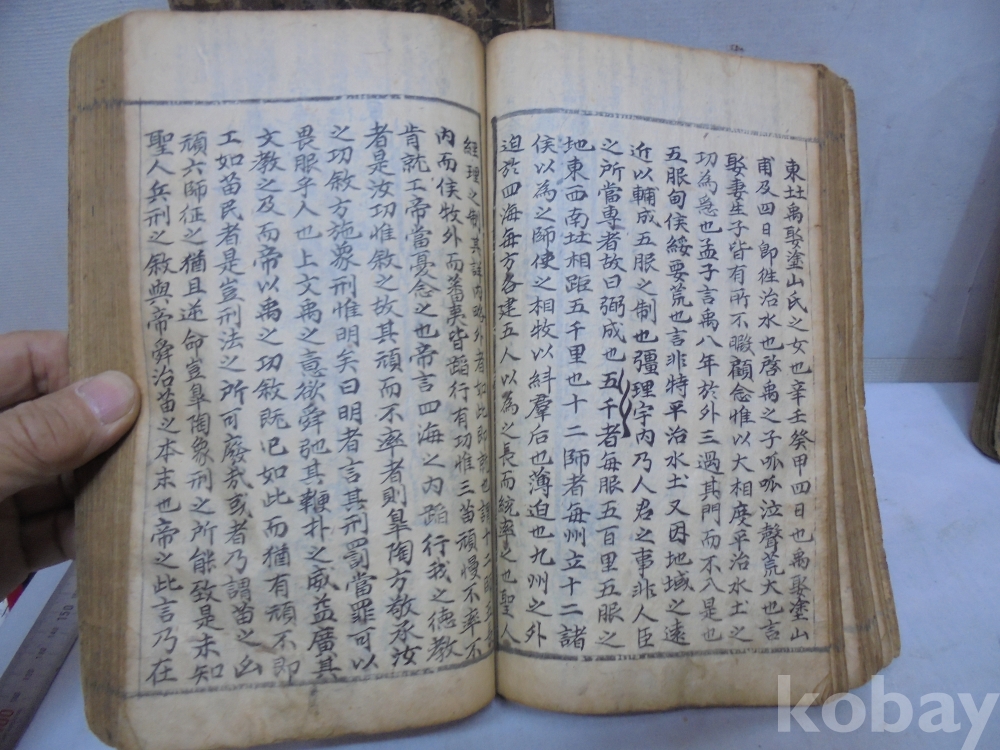 東北禹娶塗山氏之女也辛壬癸甲四日也禹娶塗山
甫及四日即往治水也啓禹之子呱呱泣聲荒大也言
娶妻生子皆有所不暇顧念惟以大相度平治水土之
功為急也孟子言禹八年於外三過其門而不入是也
五服甸侯綏要荒也言非特平治水土又因地域之遠
近以輔成五服之制也彊理宇內乃人君之事非人臣
之所當專者故曰弼成也五千者每服五百里五服之
地東西南北相距五千里也十二師者每州立十二諸
侯以為之師使之相牧以糾羣后也薄迫也九州之外
迫於四海每方各建五人以為之長而統率之也聖人
經理之制其詳內略外者如此即就也謂十二師五長
內而侯牧外而蕃夷皆蹈行有功惟三苗頑慢不率不
肯就工帝當憂念之也帝言四海之內蹈行我之德教
者是汝功惟敘之故其頑而不率者則臯陶方敬承汝
之功敘方施象刑惟明矣曰明者言其刑罰當罪可以
畏服乎人也上文禹之意欲舜弛其鞭朴之威益廣其
文教之及而帝以禹之功敘既已如此而猶有頑不即
工如苗民者是豈刑法之所可廢哉或者乃謂苗之凶
頑六師征之猶且逆命豈臯陶象刑之所能致是未知
聖人兵刑之敘與帝舜治苗之本末也帝之此言乃在
kobay